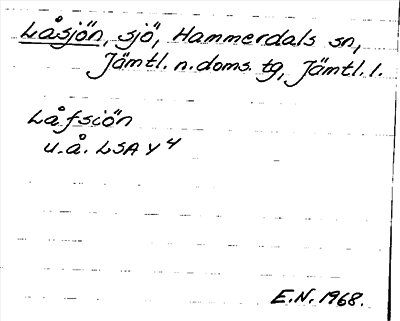 Låsjön, sjö, Hammerdals sn,
Jämtl. n. doms. tg, Jämtl. l.
Låfsiön
u.å. LSA Y 4
E.N. 1968.